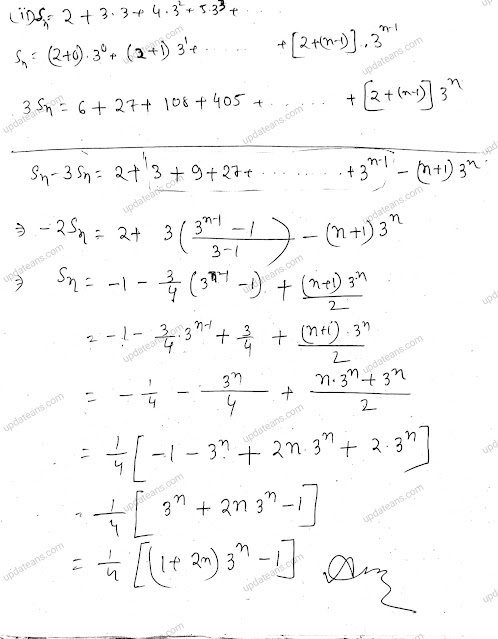 (ii) Sn = 2 + 3.3 + 4.3² + 5.3³ + ......
Sn = (2+0).3⁰ + (2+1) 3¹ + ...... + [2+(n-1)].3ⁿ⁻¹
3Sn = 6 + 27 + 108 + 405 + ...... + [2+(n-1)] 3ⁿ
Sn - 3Sn = 2 + 3 + 9 + 27 + ........ + 3ⁿ⁻¹ - (n+1) 3ⁿ
⇒ -2Sn = 2 + 3 ( (3ⁿ⁻¹ - 1) / (3-1) ) - (n+1) 3ⁿ
⇒ Sn = -1 - 3/4 (3ⁿ⁻¹ - 1) + (n+1) 3ⁿ / 2
= -1 - 3/4 . 3ⁿ⁻¹ + 3/4 + (n+1) . 3ⁿ / 2
= - 1/4 - 3ⁿ/4 + (n.3ⁿ + 3ⁿ) / 2
= 1/4 [ -1 - 3ⁿ + 2n.3ⁿ + 2.3ⁿ ]
= 1/4 [ 3ⁿ + 2n 3ⁿ - 1 ]
= 1/4 [ (1 + 2n) 3ⁿ - 1 ] Ans
updateans.com